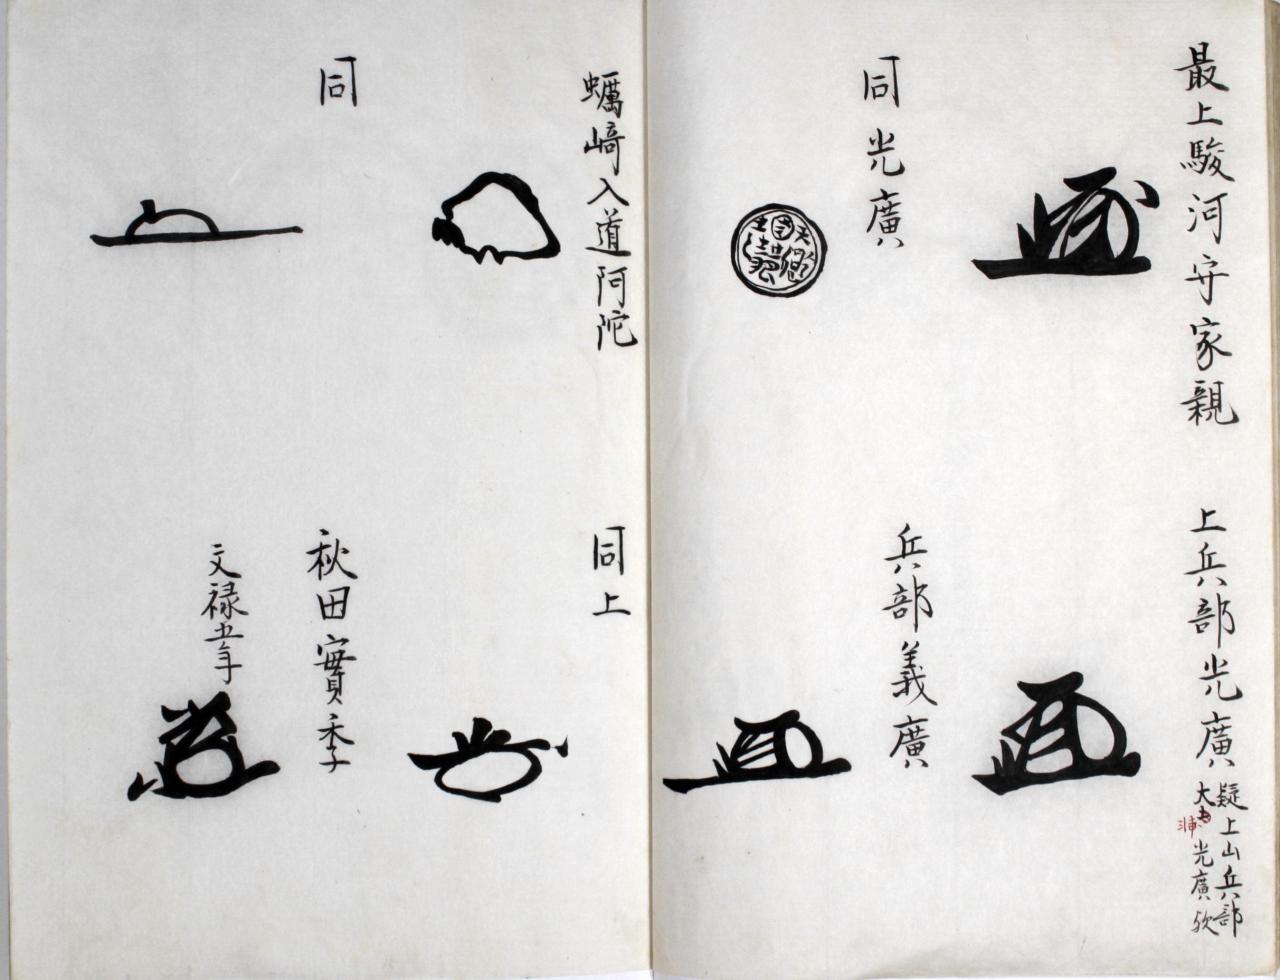 最上駿河守家親
上兵部光廣
疑上山兵部
大浦光廣欤
同光廣
兵部義廣
蠣崎入道阿陀
同上
同
秋田實季
文禄五年